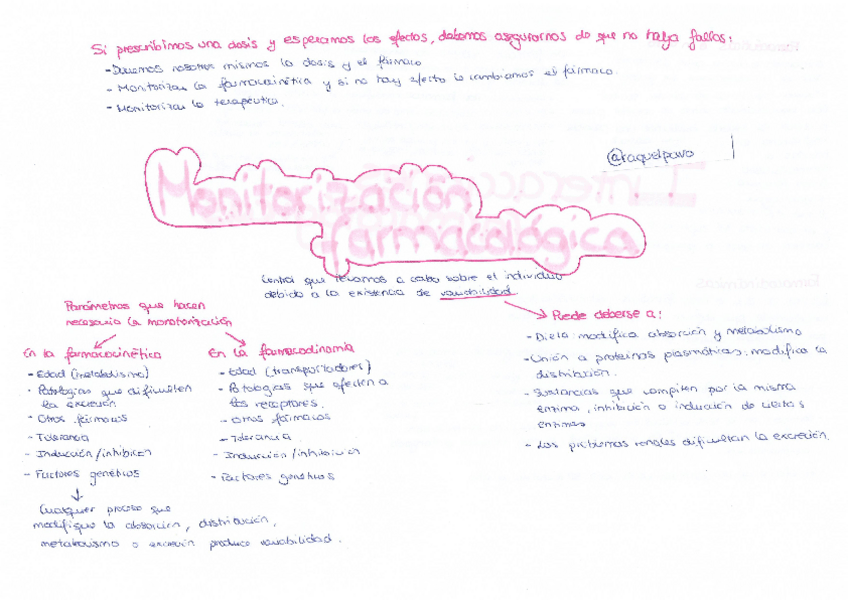 Si prescribimos una dosis y esperamos los efectos, debemos asegurarnos de que no haya fallos:
- Damos nosotros mismos la dosis y el fármaco
- Monitorizar la farmacocinética y si no hay efecto lo cambiamos el fármaco.
- Monitorizar la terapéutica.
@raquelpavo
Monitorización
farmacológica
Control que llevamos a cabo sobre el individuo
debido a la existencia de variabilidad
Parámetros que hacen
necesaria la monotorización
En la farmacocinética
- Edad (metabolismo)
- Patologías que dificulten
la excreción
- Otros fármacos
- Tolerancia
- Inducción/inhibición
- Factores genéticos
Cualquier proceso que
modifique la absorción, distribución,
metabolismo o excreción produce variabilidad.
En la farmacodinamia
- Edad (transportadores)
- Patologías que afecten a
los receptores.
- Otros fármacos
- Tolerancia
- Inducción/inhibición
- Factores genéticos
Puede deberse a:
- Dieta: modifica absorción y metabolismo
- Unión a proteínas plasmáticas: modifica la
distribución.
- Sustancias que compiten por la misma
enzima, inhibición o inducción de ciertas
enzimas
- Los problemas renales dificultan la excreción.